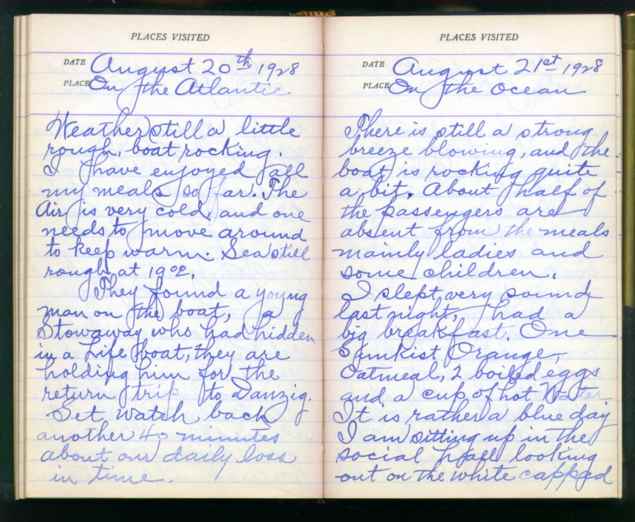 PLACES VISITED
DATE August 20th 1928
PLACE On the Atlantic
Weather still a little
rough, boat rocking.
I have enjoyed all
my meals so far. The
Air is very cold and one
needs to move around
to keep warm. Sea still
rough, at
They found a young
man on the boat, a
Stowaway who had hidden
in a Life boat, they are
holding him for the
return trip to Danzig.
Set watch back
another 40 minutes
about our daily loss
in time.
PLACES VISITED
DATE August 21st 1928
PLACE On the Ocean
There is still a strong
breeze blowing, and the
boat is rocking quite
a bit. About half of
the passengers are
absent from the meals
mainly ladies and
some children.
I slept very sound
last night, had a
big breakfast. One
Sunkist Orange,
Oatmeal, 2 boiled eggs
and a cup of hot Water
It is rather a blue day
I am sitting up in the
social hall looking
out on the white capped